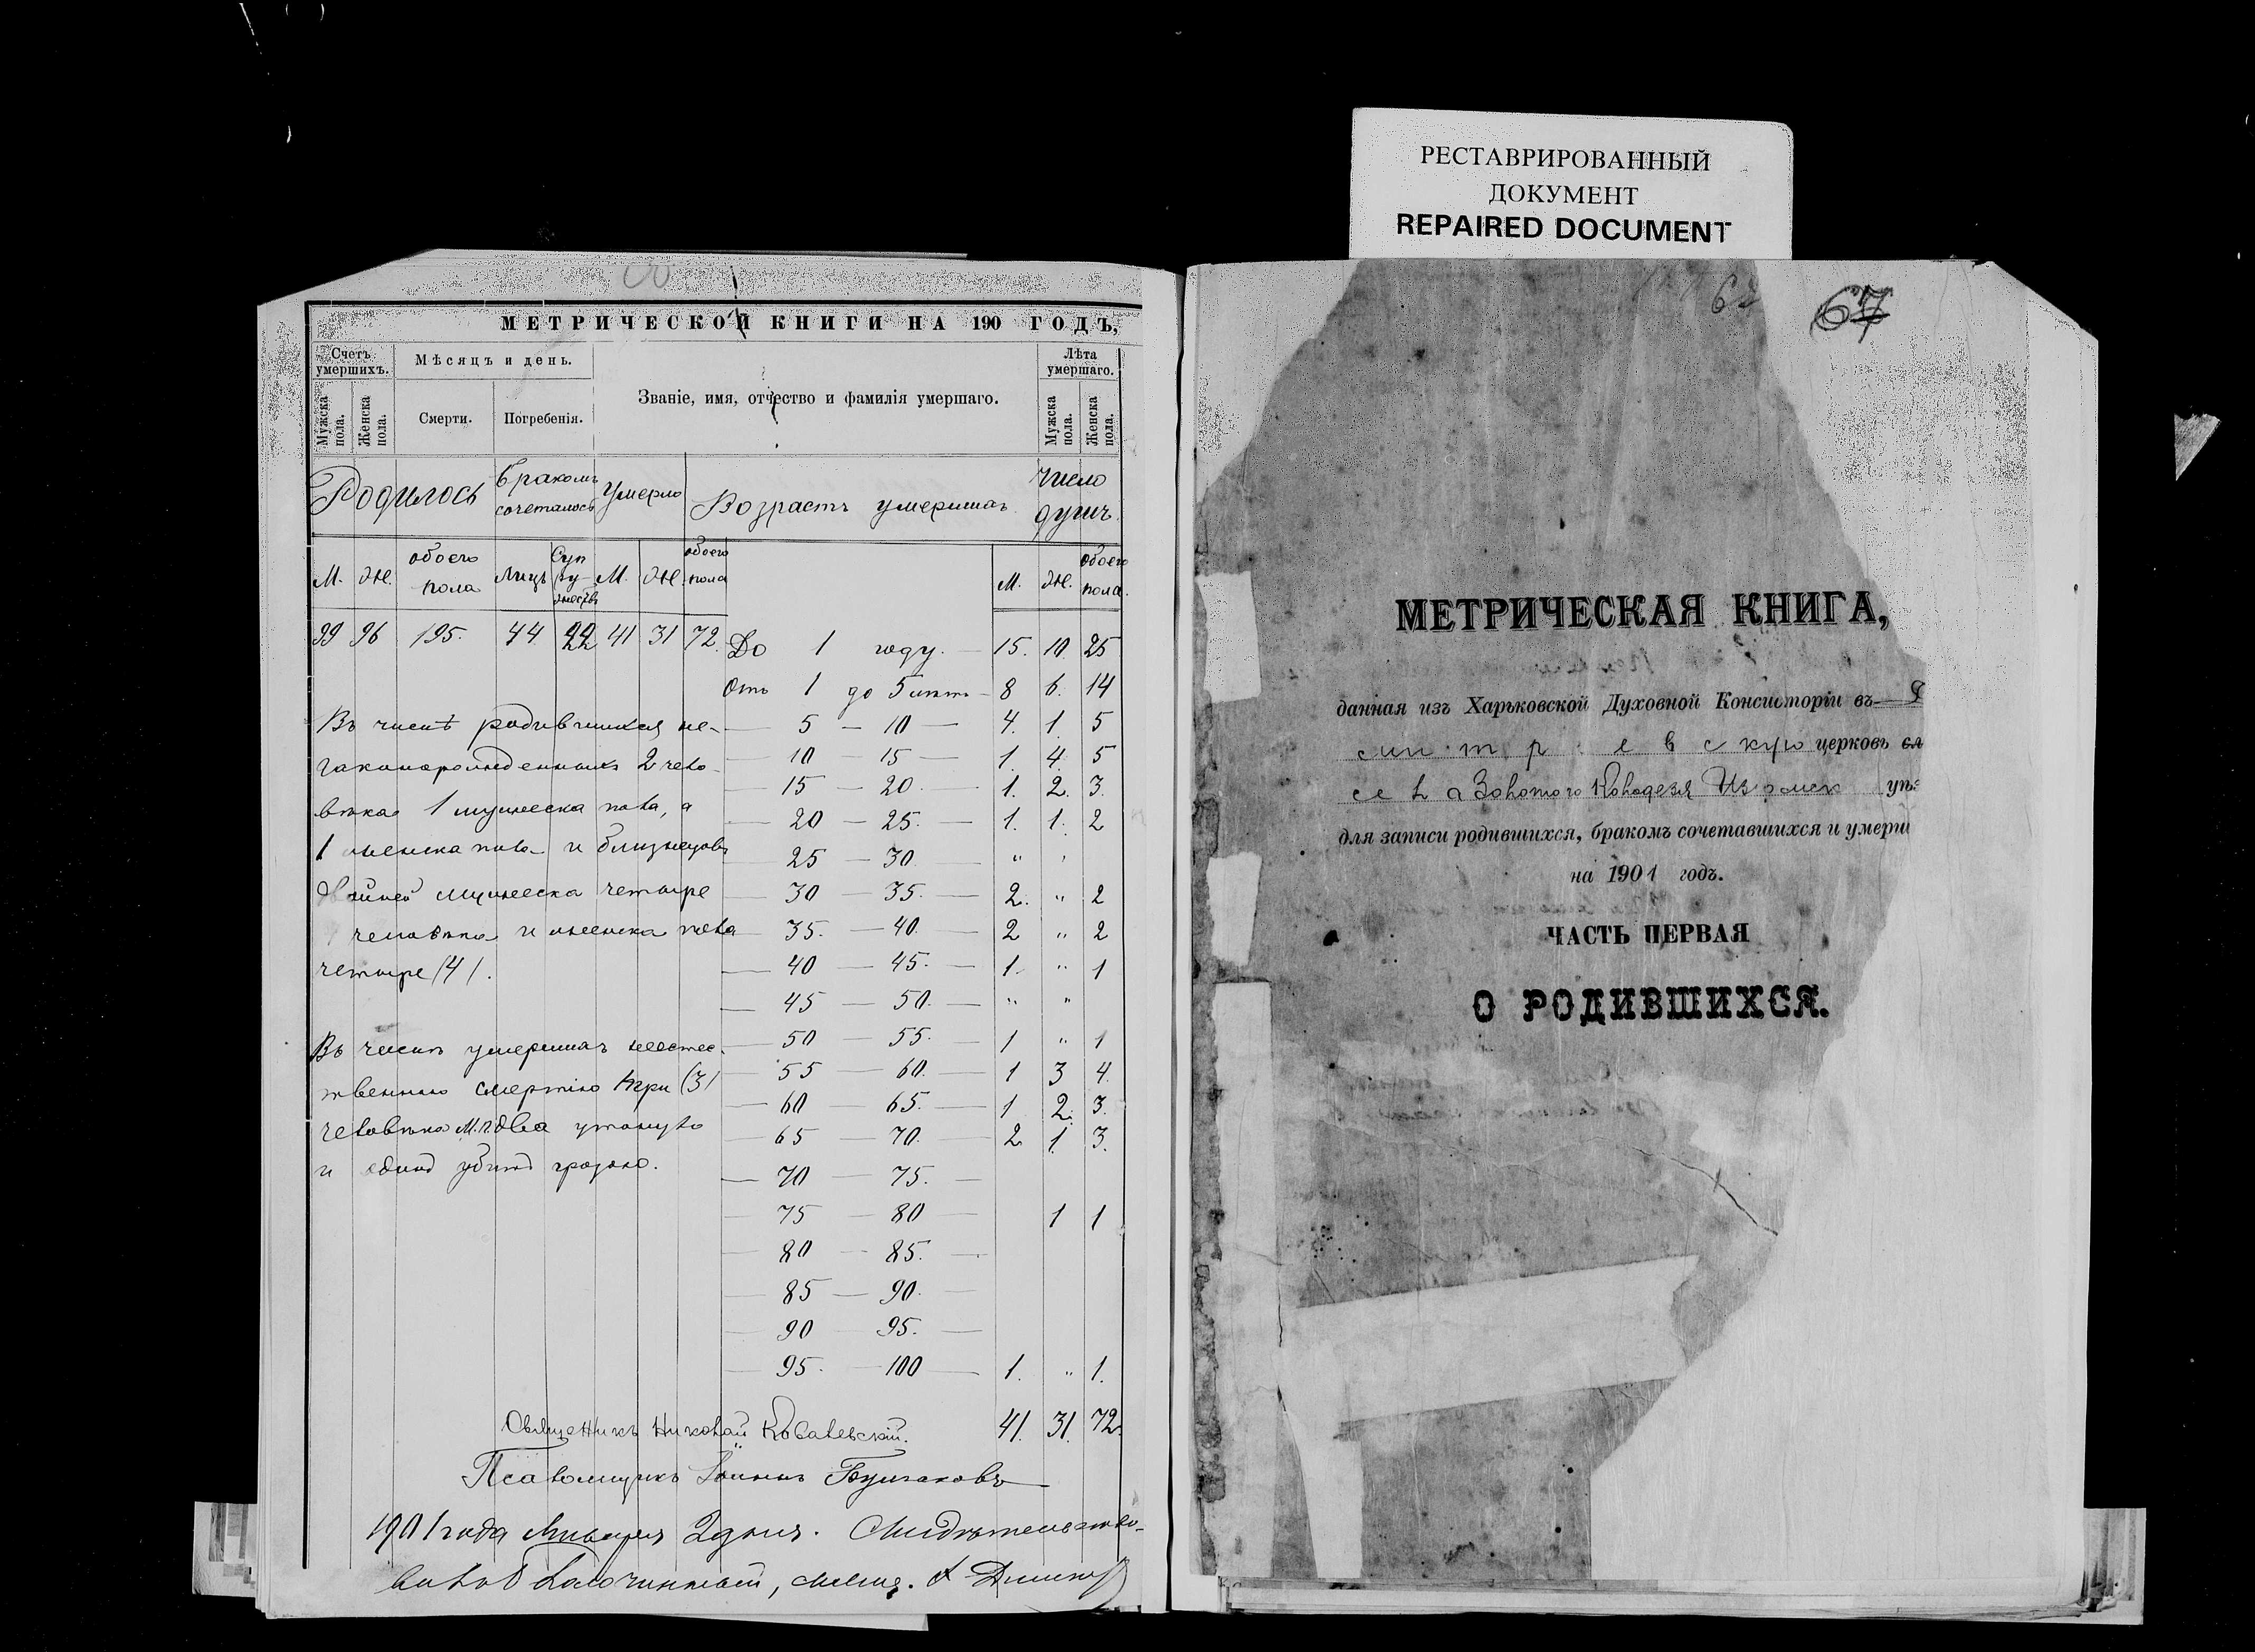 РЕСТАВРИРОВАННЫЙ
ДОКУМЕНТ
REPAIRED DOCUMENT
МЕТРИЧЕСКОЙ КНИГИ НА 190 ГОДЪ,
Счетъ умершихъ.
Мужска пола.
Женска пола.
Мѣсяцъ и день.
Смерти.
Погребенія.
Званіе, имя, отчество и фамилія умершаго.
Лѣта умершаго.
Мужска пола.
Женска пола.
Родилось
бракомъ сочеталось
Умерло
Возрастъ умершихъ
Число душъ
М. Же. обоего пола Лицъ Суп М. Же. обоего пола М. Же. обоего пола.
99 96 195. 44 22 41 31 72. До 1 году. 15. 10. 25
Отъ 1 до 5 лѣтъ 8 6. 14
— 5 — 10 — 4. 1. 5
— 10 — 15 — 1. 4. 5
— 15 — 20. — 1. 2. 3.
— 20 — 25. — 1. 1. 2
25 — 30 — "
— 30 — 35. — 2. " 2
— 35. — 40. — 2 " 2
— 40 — 45. — 1. " 1
— 45 — 50. — " "
— 50 — 55. — 1 " 1
— 55 — 60. — 1 3 4.
— 60 — 65. — 1 2. 3.
— 65 — 70. — 2 1. 3.
— 70 — 75. —
— 75 — 80 — 1 1
— 80 — 85. —
— 85 — 90. —
— 90 — 95. —
— 95. — 100 — 1. " 1.
41. 31. 72.
Въ числѣ родившихся не-
законорожденныхъ 2 чело-
вѣка 1 мужеска пола, а
1 женска пола и близнецовъ
двойней мужеска четыре
человѣка и женска пола
четыре (4).
Въ числѣ умершихъ неестес-
твенною смертію три (3)
человѣка м.п. два утонуло
и одинъ убитъ грозою.
Священникъ Николай Ковалевскій.
Псаломщикъ Іоаннъ Булгаковъ
1901 года Января 2 дня. Свидѣтельство-
валъ Благочинный, свящ.
67
МЕТРИЧЕСКАЯ КНИГА,
данная изъ Харьковской Духовной Консисторіи въ Д
митріевскую церковь сл
села Золотого Колодезя Изюмск уѣз
для записи родившихся, бракомъ сочетавшихся и умерш
на 1901 годъ.
ЧАСТЬ ПЕРВАЯ
О РОДИВШИХСЯ.